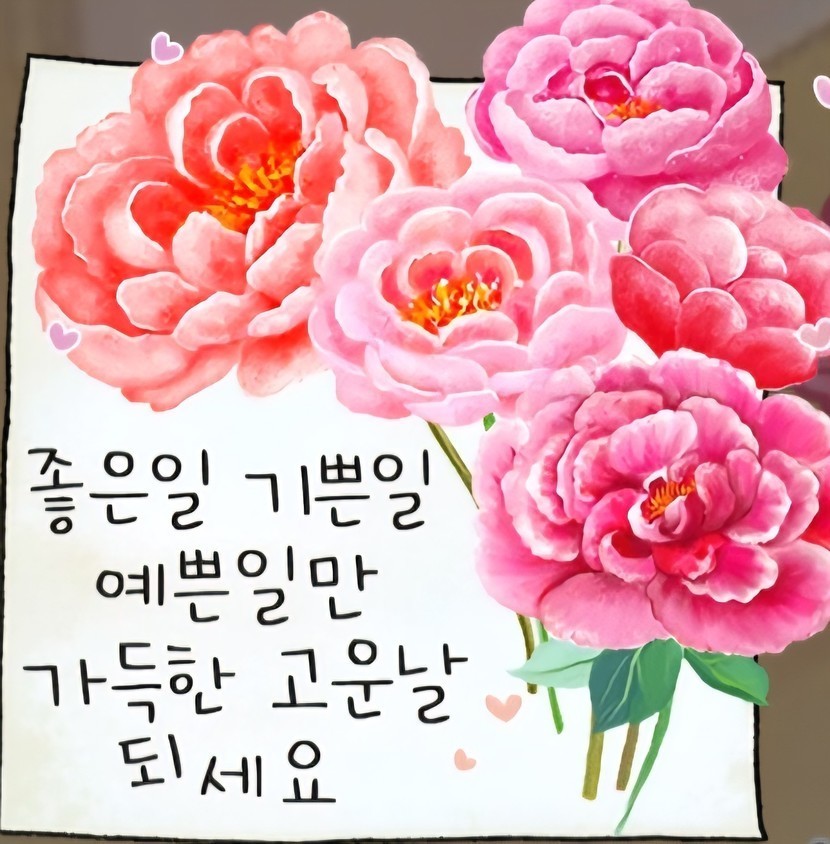 좋은일 기쁜일
예쁜일만
가득한 고운날
되세요